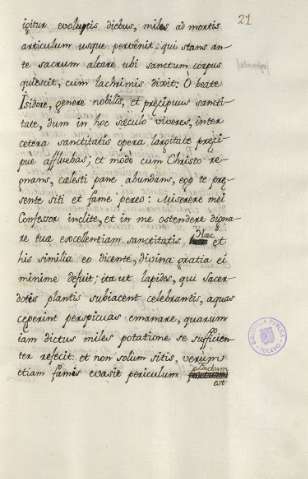 21
igitur evolutis dictus, miles ad mortis
articulum usque pervenit: qui stans an-
te sacrum altare ubi sanctum corpus
quiescit, cum lachrimis dixit: O beate
Isidore, genere nobilis, et præcipuus sancti-
tate, dum in hoc sæculo viveres, inter
cetera sanctitatis opera largitate præci-
pue affluebas; et modo cum Christo re-
gnans, cælesti pane abundans, ego te præ-
sente siti et fame pereo: Miserere mei
Confessor inclite, et in me ostendere digna-
re tua excellentiam sanctitatis. Hæc et
his similia eo dicente, divina gratia ei
minime defuit; ita ut lapides, qui sacer-
dotis plantis subiacent celebrantis, aquas
ceperint perspicuas emanare, quarum
iam dictus miles potatione se sufficien-
ter refecit. et non solum sitis, verum
etiam famis evasit periculum
est